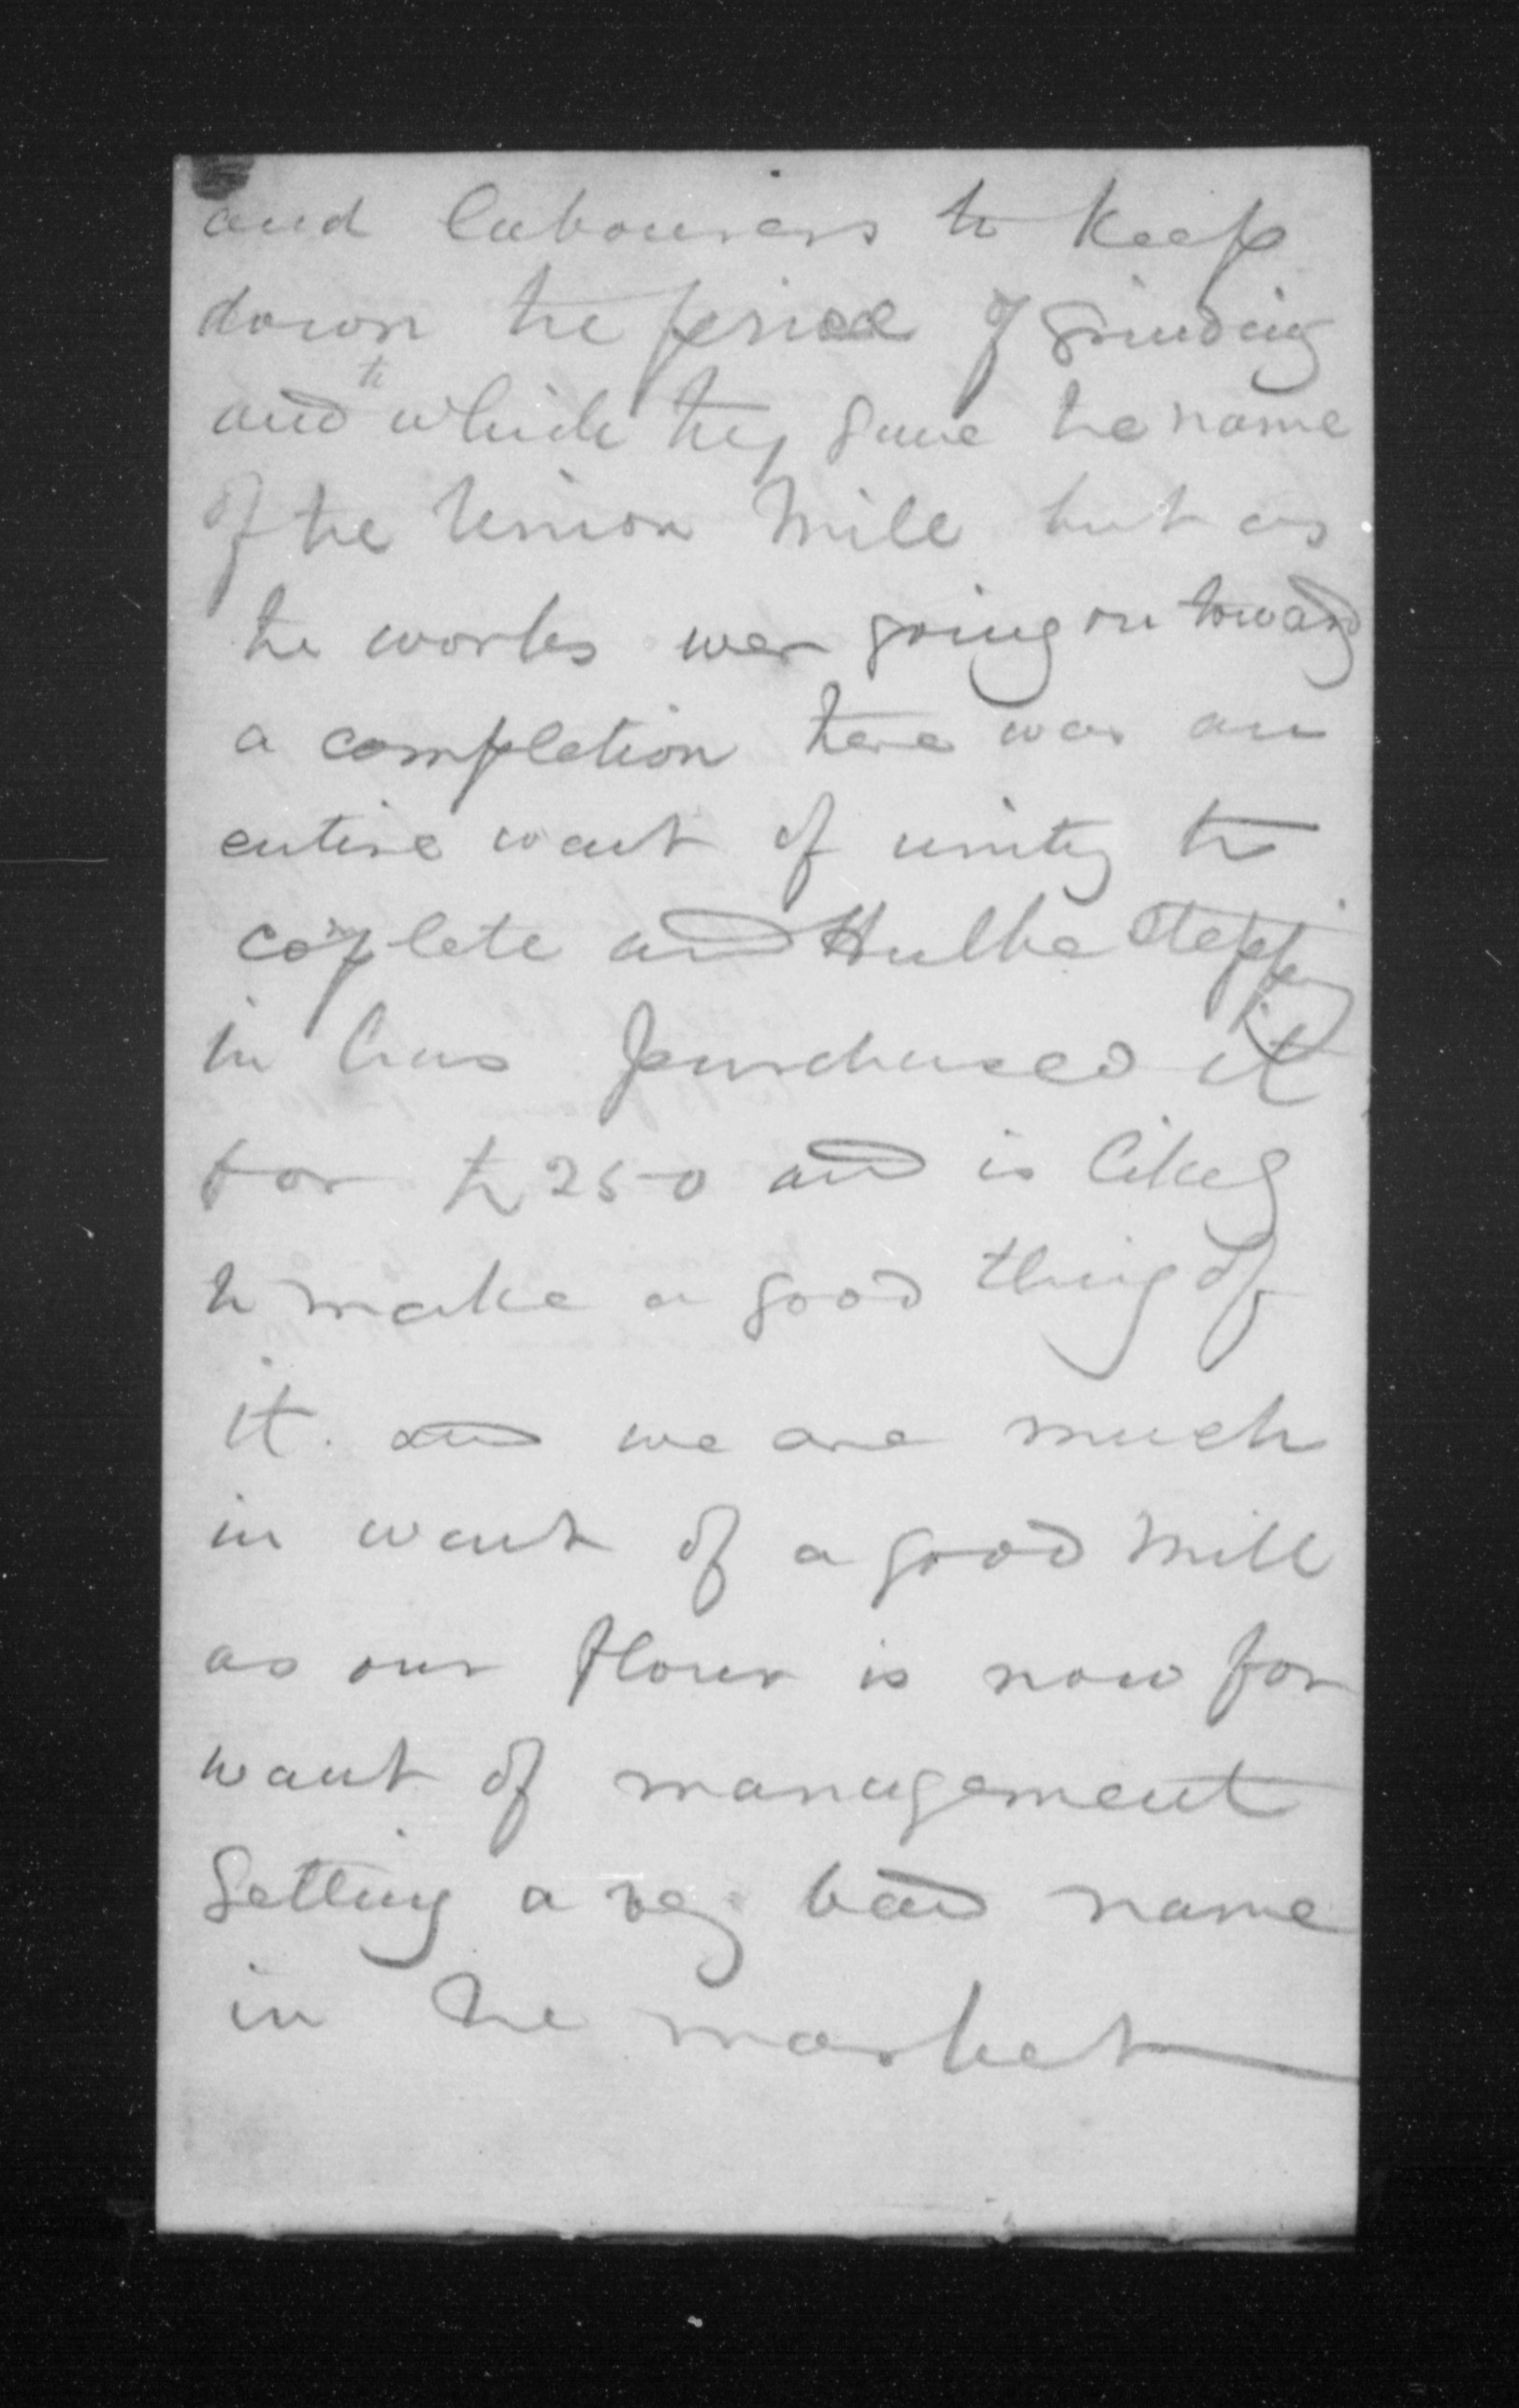 and labourers to keep
down the price of grinding
and to which they gave the name
of the Union Mill but as
the works wer going on toward
a completion there was an
entire want of unity to
complete and Hulbe stepping
in has purchased it
for £ 250 and is likely
to make a good thing of
it. and we are much
in want of a good Mill
as our flour is now for
want of management
getting a very bad name
in the market